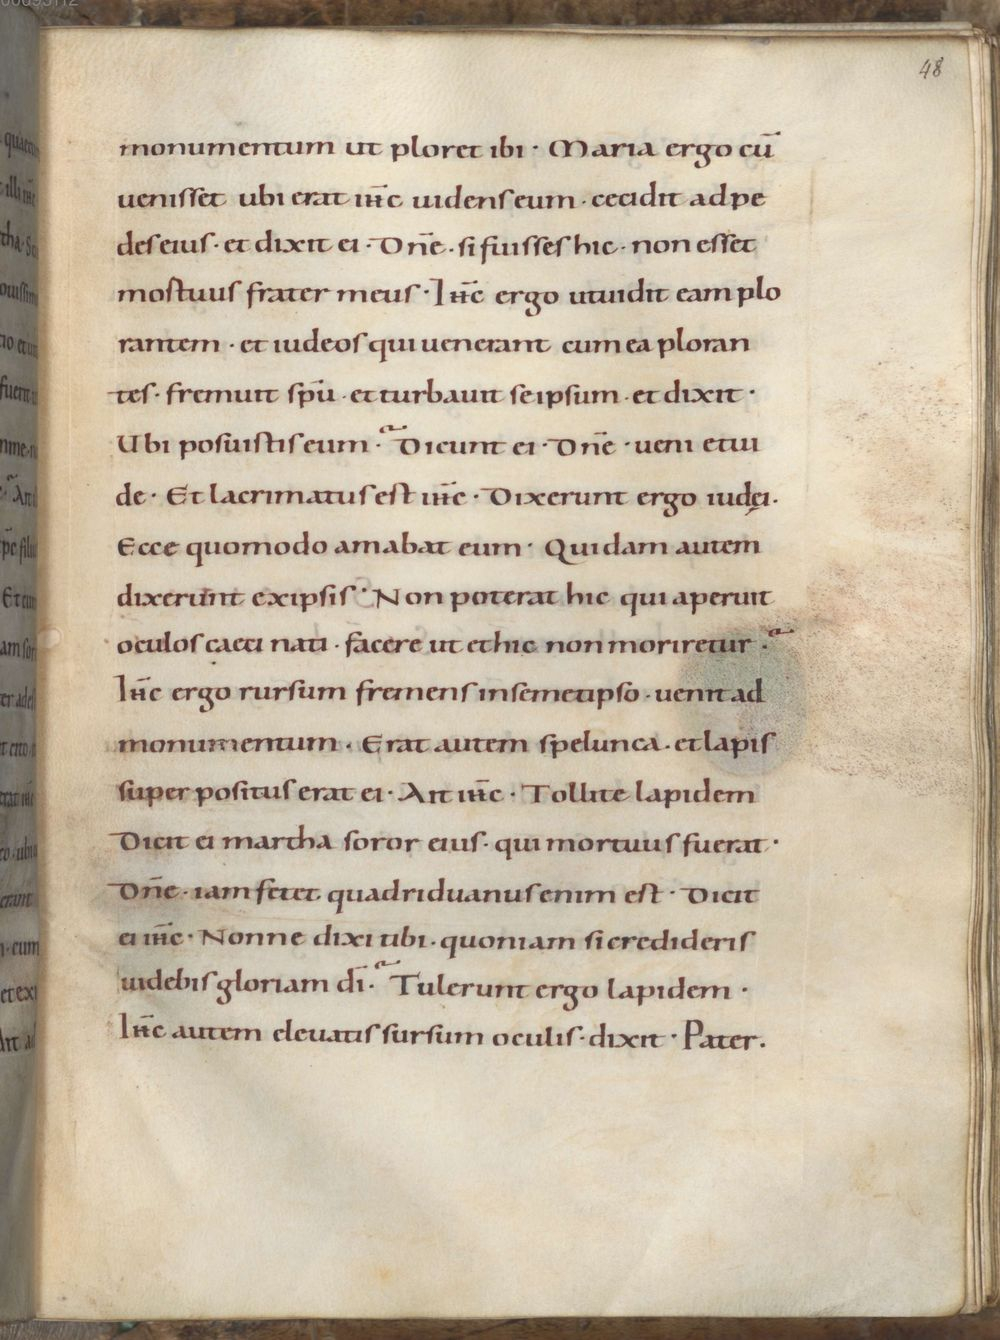 48
monumentum ut ploret ibi · Maria ergo cū
uenisset ubi erat ih̅c uidens eum · cecidit ad pe
des eius · et dixit ei · Dn̅e · si fuisses hic · non esset
mortuus frater meus · Ih̅c ergo ut uidit eam plo
rantem · et iudeos qui uenerant cum ea ploran
tes · fremuit sp̅u · et turbauit se ipsum · et dixit ·
Ubi posuistis eum · Dicunt ei · Dn̅e · ueni et ui
de · Et lacrimatus est ih̅c · Dixerunt ergo iudei ·
Ecce quomodo amabat eum · Quidam autem
dixerunt ex ipsis · Non poterat hic qui aperuit
oculos caeci nati · facere ut et hic non moriretur ·
Ih̅c ergo rursum fremens in semetipso · uenit ad
monumentum · Erat autem spelunca · et lapis
super positus erat ei · Ait ih̅c · Tollite lapidem
Dicit ei martha soror eius · qui mortuus fuerat ·
Dn̅e · iam fetet quadriduanus enim est · Dicit
ei ih̅c · Nonne dixi tibi · quoniam si credideris
uidebis gloriam di̅ · Tulerunt ergo lapidem ·
Ih̅c autem eleuatis sursum oculis · dixit · Pater ·